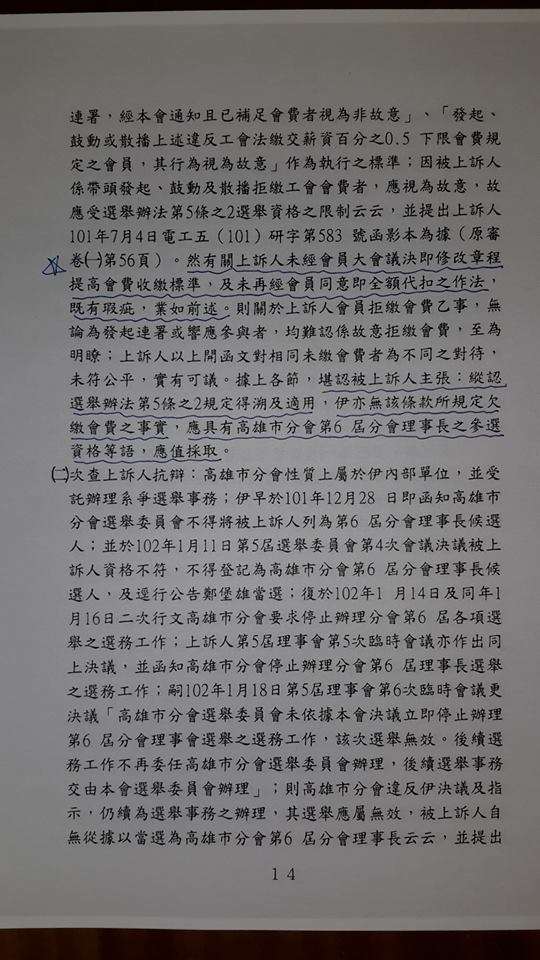 連署，經本會通知且已補足會費者視為非故意」、「發起、
鼓動或散播上述違反工會法繳交薪資百分之0.5 下限會費規
定之會員，其行為視為故意」作為執行之標準；因被上訴人
係帶頭發起、鼓動及散播拒繳工會會費者，應視為故意，故
應受選舉辦法第5條之2選舉資格之限制云云，並提出上訴人
101年7月4日電工五（101）研字第583 號函影本為據（原審
卷㈠第56頁）。然有關上訴人未經會員大會議決即修改章程
提高會費收繳標準，及未再經會員同意即全額代扣之作法，
既有瑕疵，業如前述。則關於上訴人會員拒繳會費乙事，無
論為發起連署或響應參與者，均難認係故意拒繳會費，至為
明瞭；上訴人以上開函文對相同未繳會費者為不同之對待，
未符公平，實有可議。據上各節，堪認被上訴人主張：縱認
選舉辦法第5條之2規定得溯及適用，伊亦無該條款所規定欠
繳會費之事實，應具有高雄市分會第6 屆分會理事長之參選
資格等語，應值採取。
㈡次查上訴人抗辯：高雄市分會性質上屬於伊內部單位，並受
託辦理系爭選舉事務；伊早於101年12月28 日即函知高雄市
分會選舉委員會不得將被上訴人列為第6 屆分會理事長候選
人；並於102年1月11日第5屆選舉委員會第4次會議決議被上
訴人資格不符，不得登記為高雄市分會第6 屆分會理事長候
選人，及逕行公告鄭堡雄當選；復於102年1 月14日及同年1
月16日二次行文高雄市分會要求停止辦理分會第6 屆各項選
舉之選務工作；上訴人第5屆理事會第5次臨時會議亦作出同
上決議，並函知高雄市分會停止辦理分會第6 屆理事長選舉
之選務工作；嗣102年1月18日第5屆理事會第6次臨時會議更
決議「高雄市分會選舉委員會未依據本會決議立即停止辦理
第6 屆分會理事會選舉之選務工作，該次選舉無效。後續選
務工作不再委任高雄市分會選舉委員會辦理，後續選舉事務
交由本會選舉委員會辦理」；則高雄市分會違反伊決議及指
示，仍續為選舉事務之辦理，其選舉應屬無效，被上訴人自
無從據以當選為高雄市分會第6 屆分會理事長云云，並提出
14